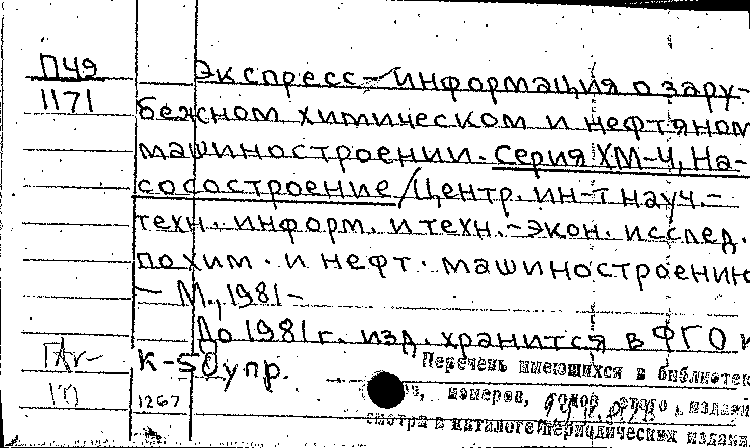 П49
1171
Экспресс-информация о зару-
бежном химическом и нефтяном
машиностроении. Серия ХМ-4, На-
сосостроение/Центр. ин-т науч.-
техн. информ. и техн.-экон. исслед.
по хим. и нефт. машиностроению
— М., 1981-
До 1981 г. изд. хранится в ФГО и
К-50 упр.
1267
Перечень имеющихся в библиотек
номеров, годов этого издани
смотри в каталоге периодических издани